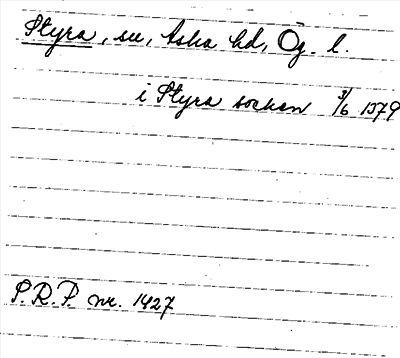 Styra, sn, Aska hd, Ög. l.
i Styra socken 3/6 1379
P.R.P. nr. 1427